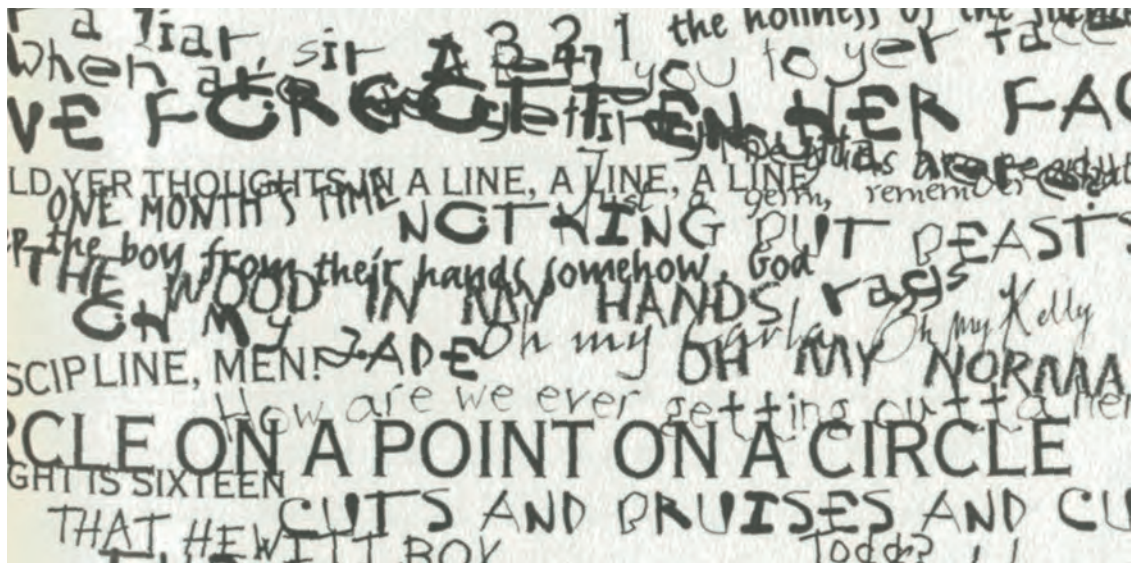 a liar, sir
A 3 2 1
the holiness of the
When are
you to yer face
VE FORGOTTEN HER FAC
LD YER THOUGHTS IN A LINE, A LINE, A LINE
Just a germ, remember
ONE MONTH'S TIME
NOTHING BUT BEASTS
the boy from their hands somehow, God
THE WOOD IN MY HANDS
rags
OH My JADE
Oh my Carla
Oh my Kelly
OH MY NORMA
SCIPLINE, MEN!
How are we ever getting outta her
RCLE ON A POINT ON A CIRCLE
GHT IS SIXTEEN
CUTS AND BRUISES AND CU
THAT HEWITT BOY
Todd?